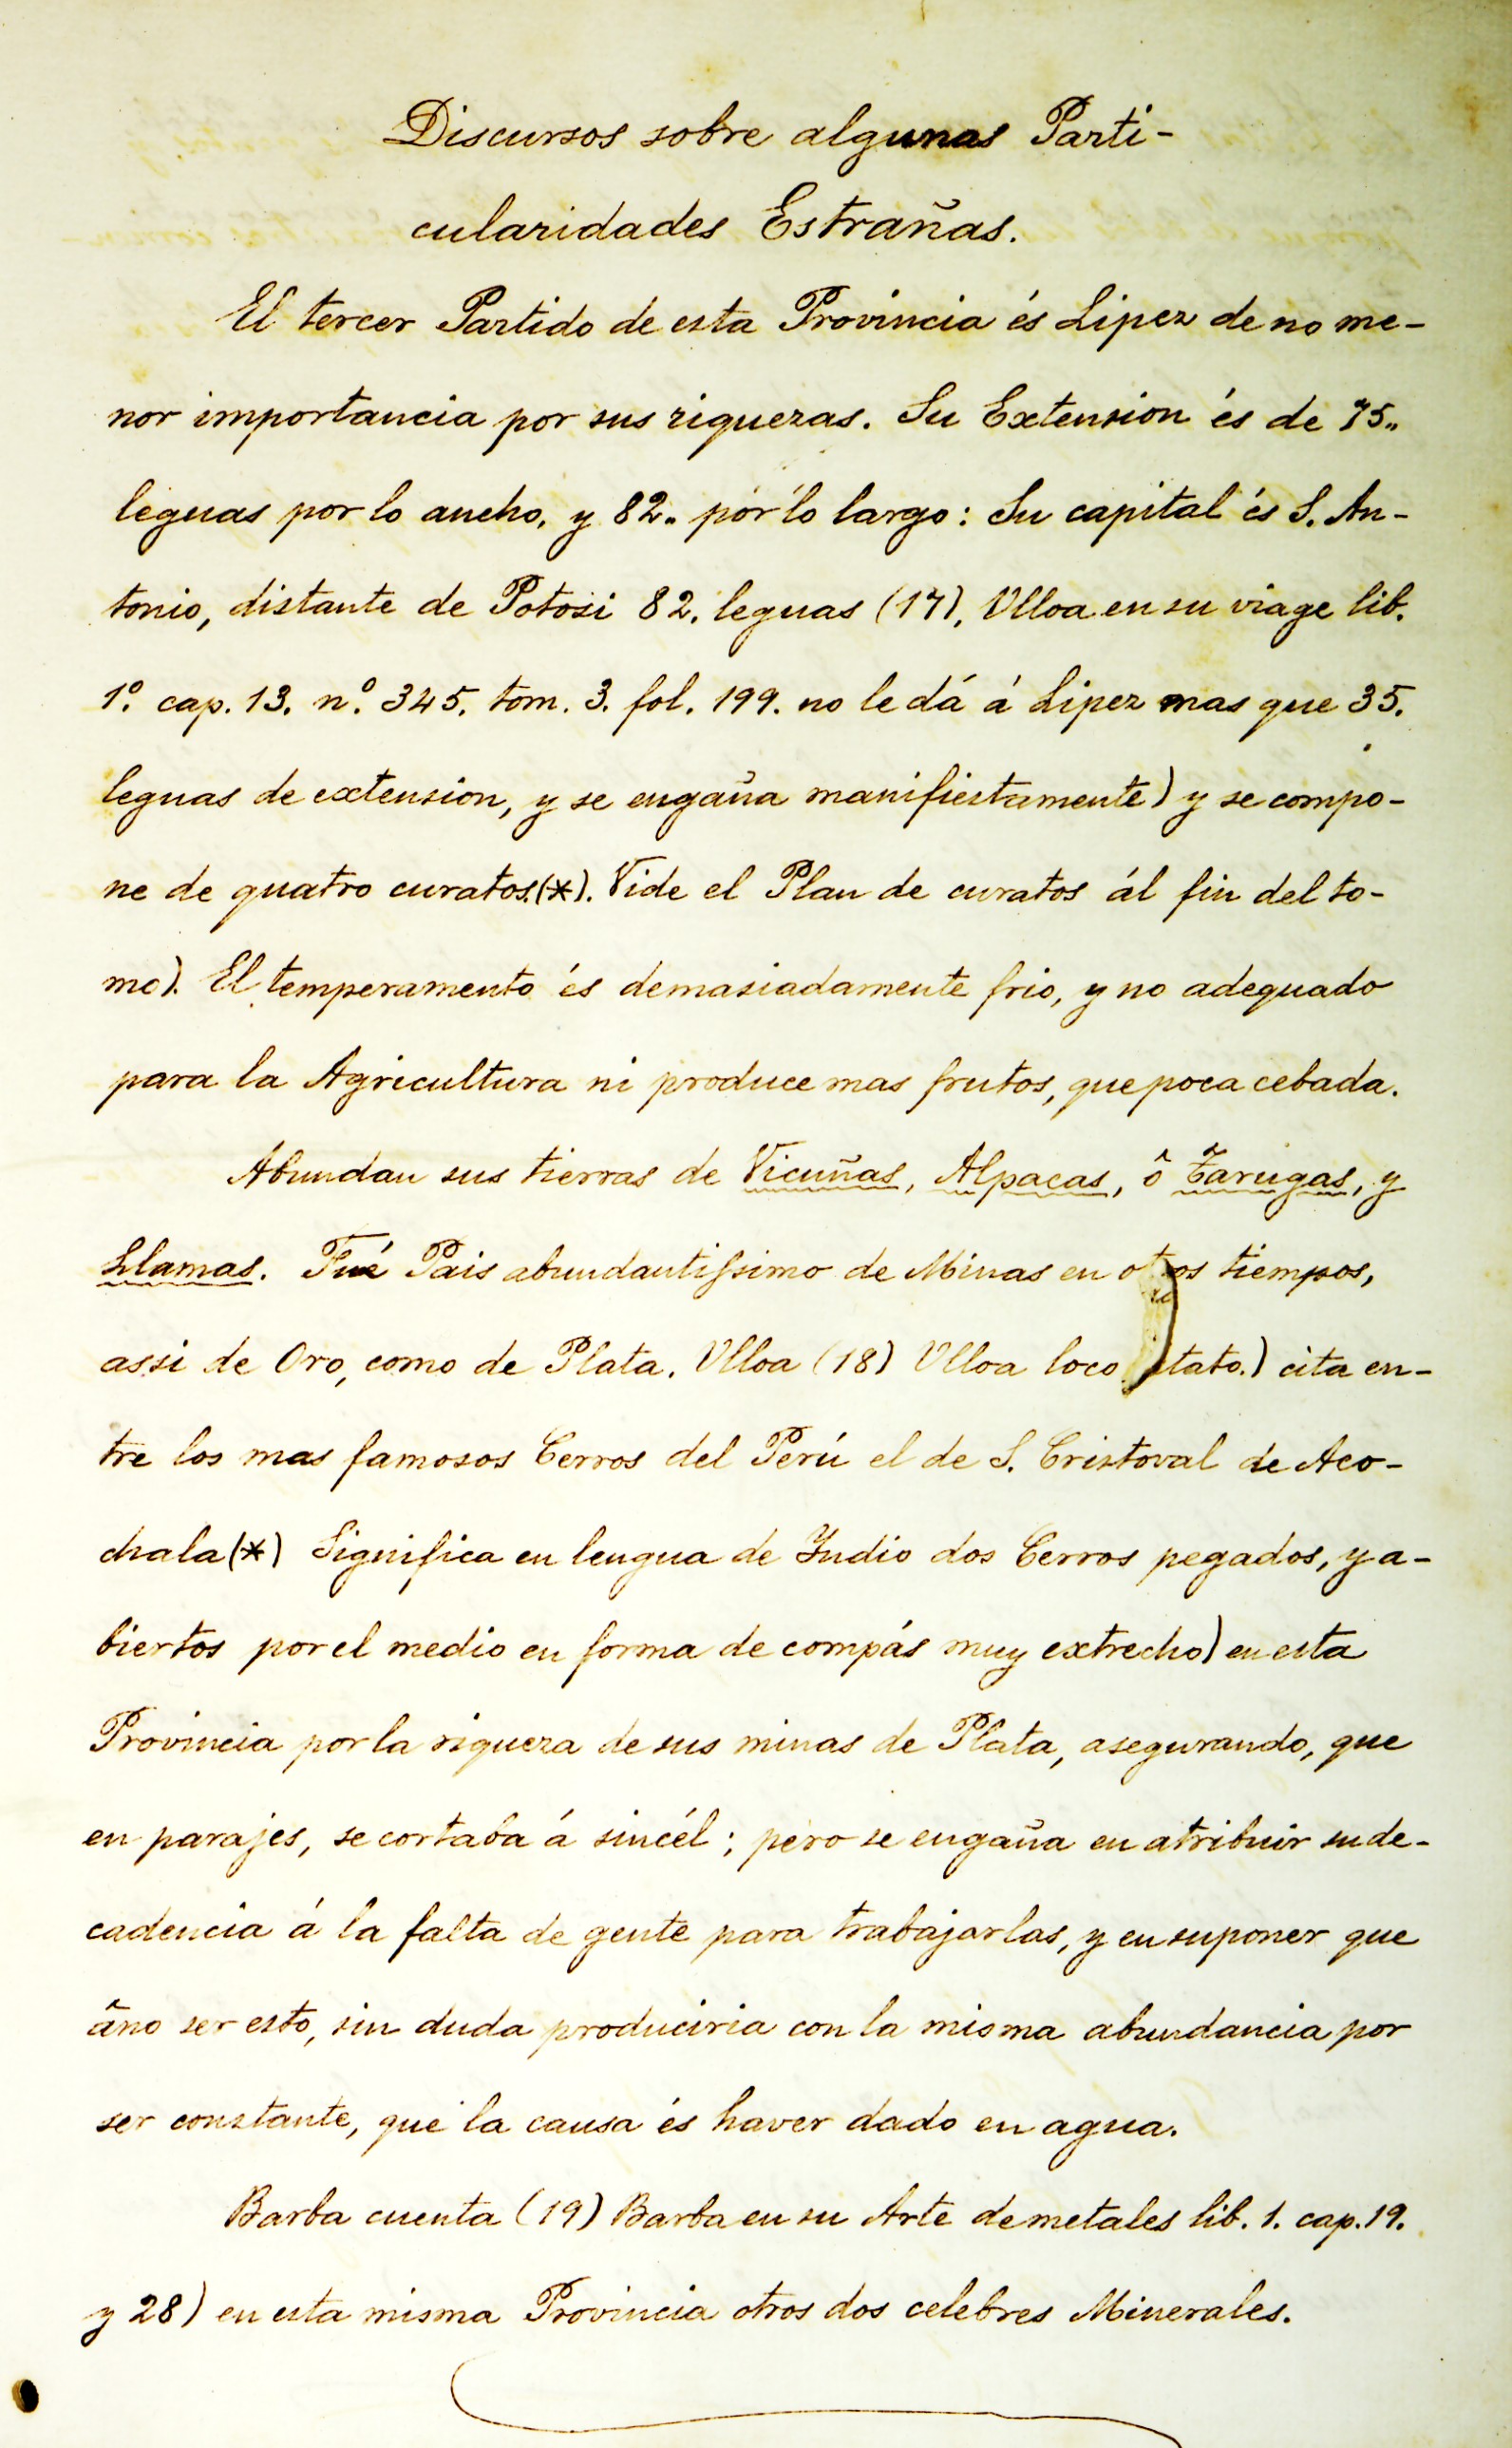 Discursos sobre algunas Parti-
cularidades Estrañas.
El tercer Partido de esta Provincia és Lipez de no me-
nor importancia por sus riquezas. Su Extension és de 75„
leguas por lo ancho, y 82„ por lo largo: Su capital és S. An-
tonio, distante de Potosi 82. leguas (17), Ulloa en su viage lib.
1º. cap. 13. nº. 345. tom. 3. fol. 199. no le dá á Lipez mas que 35.
leguas de extension, y se engaña manifiestamente) y se compo-
ne de quatro curatos.(*). Vide el Plan de curatos ál fin del to-
mo). El temperamento és demasiadamente frio, y no adequado
para la Agricultura ni produce mas frutos, que poca cebada.
Abundan sus tierras de Vicuñas, Alpacas, ô Tarugas, y
Llamas. Fué Pais abundantissimo de Minas en otros tiempos,
assi de Oro, como de Plata. Ulloa (18) Ulloa loco citato.) cita en-
tre los mas famosos Cerros del Perú el de S. Cristoval de Aco-
chala (*) Significa en lengua de Indio dos Cerros pegados, y a-
biertos por el medio en forma de compás muy extrecho) en esta
Provincia por la riqueza de sus minas de Plata, asegurando, que
en parajes, se cortaba á sincél; pero se engaña en atribuir su de-
cadencia á la falta de gente para trabajarlas, y en suponer que
âno ser esto, sin duda produciria con la misma abundancia por
ser constante, que la causa és haver dado en agua.
Barba cuenta (19) Barba en su Arte de metales lib. 1. cap. 19.
y 28) en esta misma Provincia otros dos celebres Minerales.